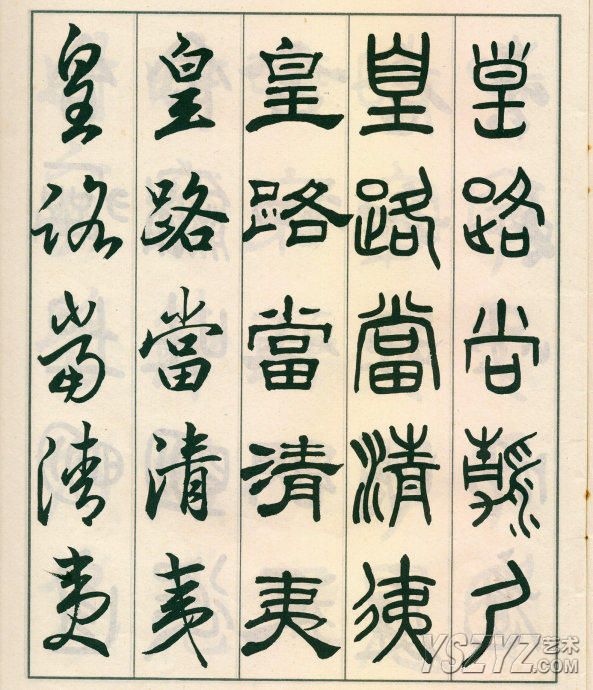 皇路當清夷
皇路當清夷
皇路當清夷
皇路當清夷
皇路當清夷
YSZYZ艺术
.com